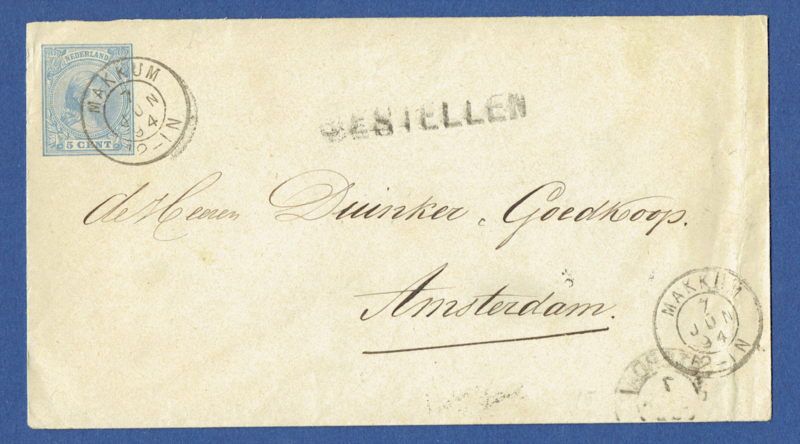 NEDERLAND
5 CENT
MAKKUM
7
JUN
94
N-I
BESTELLEN
de Heeren Duinker, Goedkoop.
Amsterdam.
MAKKUM
7
JUN
94
N-I